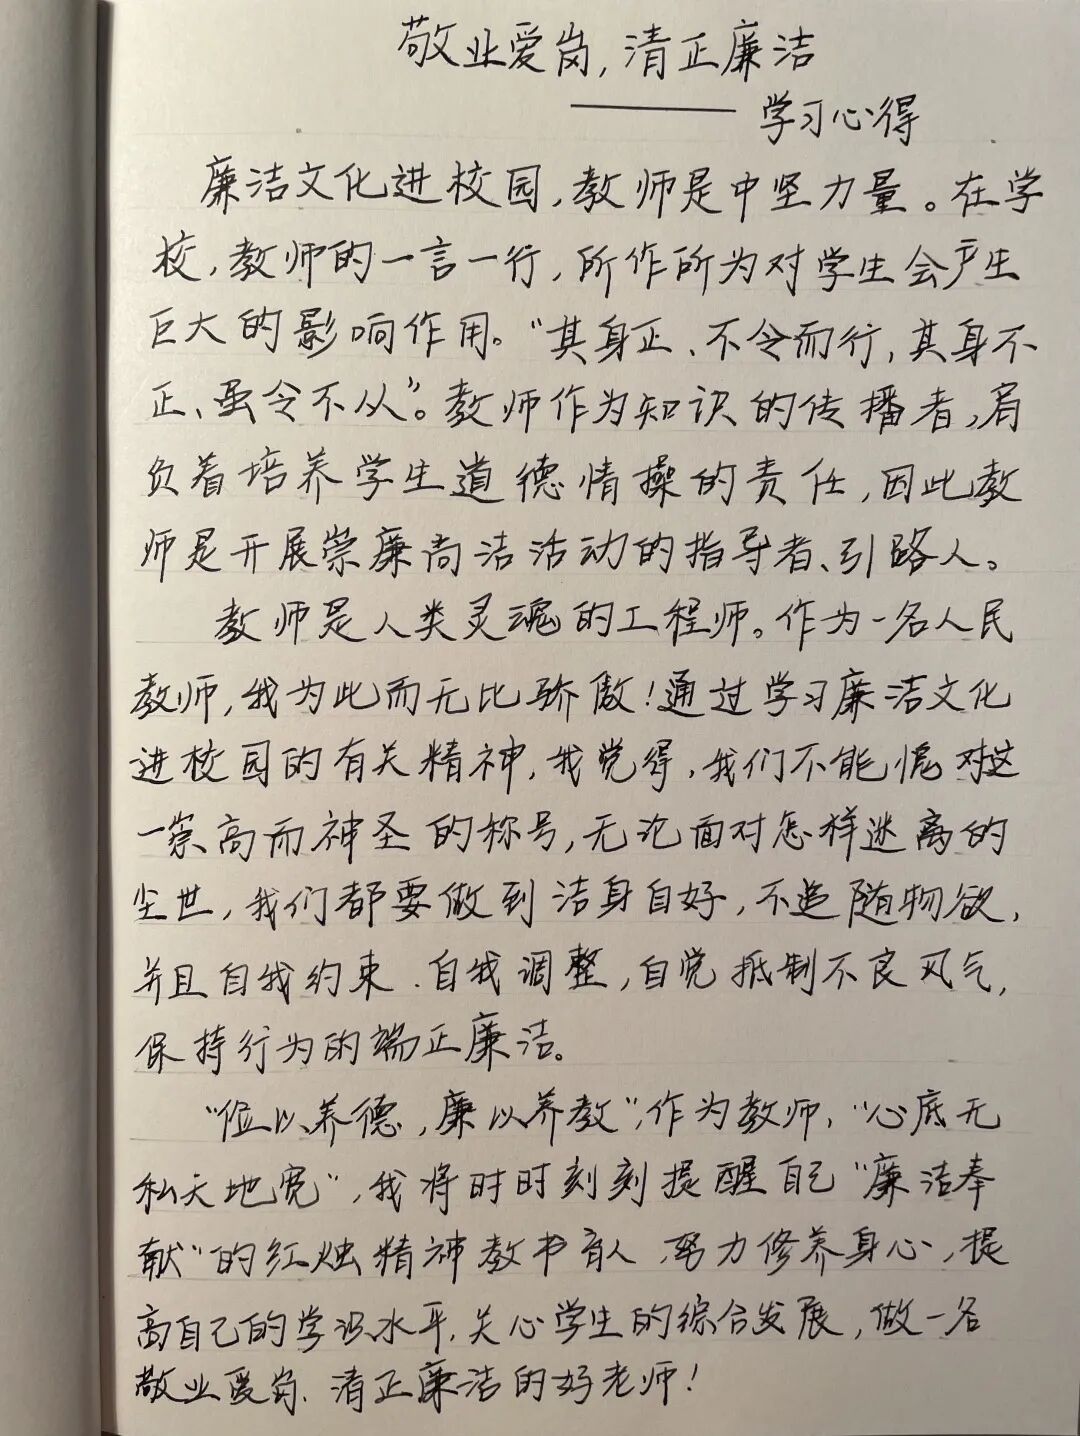 敬业爱岗,清正廉洁
——学习心得
廉洁文化进校园,教师是中坚力量。在学
校,教师的一言一行,所作所为对学生会产生
巨大的影响作用。“其身正、不令而行,其身不
正、虽令不从”。教师作为知识的传播者,肩
负着培养学生道德情操的责任,因此教
师是开展崇廉尚洁活动的指导者、引路人。
教师是人类灵魂的工程师。作为一名人民
教师,我为此而无比骄傲!通过学习廉洁文化
进校园的有关精神,我觉得,我们不能愧对这
一崇高而神圣的称号,无论面对怎样迷离的
尘世,我们都要做到洁身自好,不追随物欲,
并且自我约束、自我调整,自觉抵制不良风气,
保持行为的端正廉洁。
“俭以养德,廉以养教”,作为教师,“心底无
私天地宽”,我将时时刻刻提醒自己“廉洁奉
献”的红烛精神教书育人,努力修养身心,提
高自己的学识水平,关心学生的综合发展,做一名
敬业爱岗、清正廉洁的好老师!